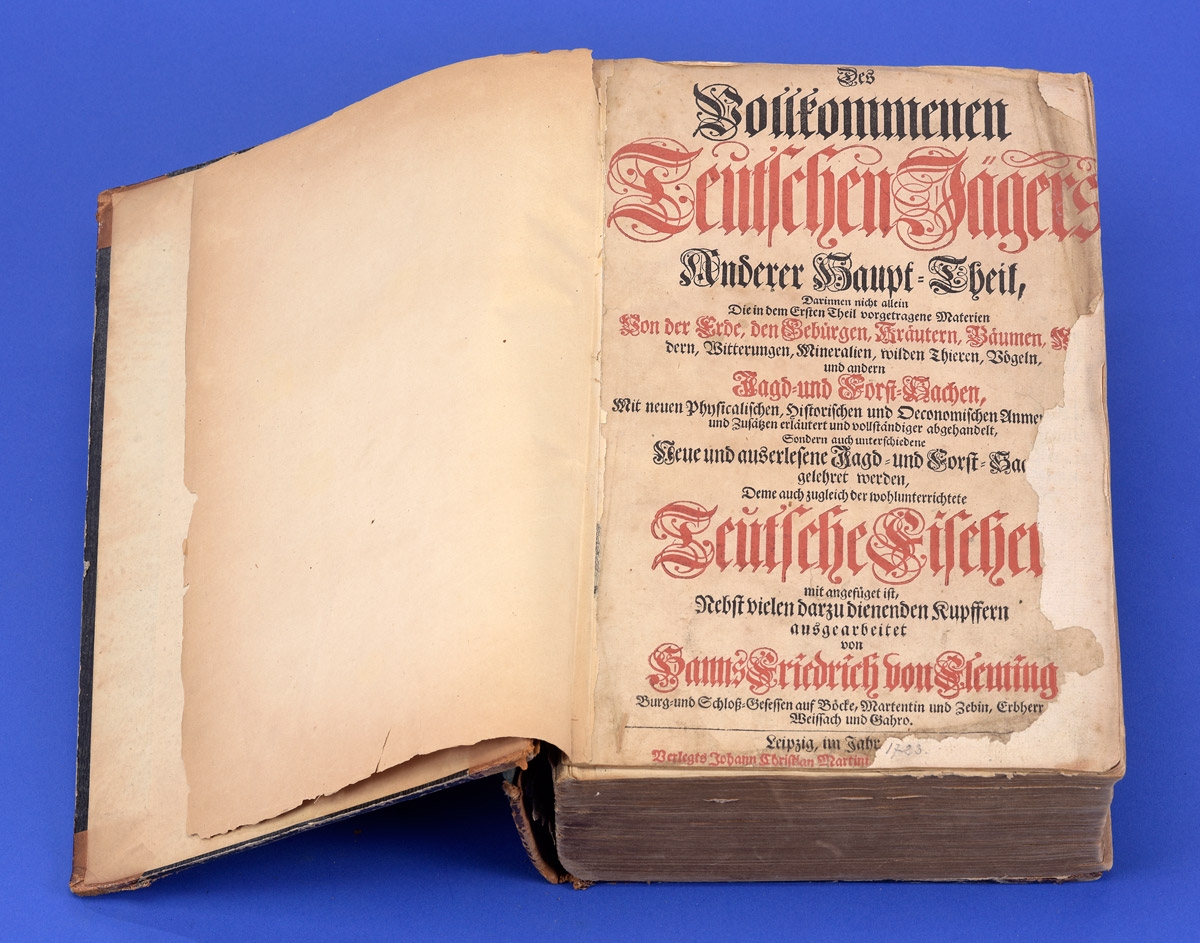 Des
Vollkommenen
Teutschen Jägers
Anderer Haupt-Theil,
Darinnen nicht allein
Die in dem Ersten Theil vorgetragene Materien
Von der Erde, den Gebürgen, Kräutern, Bäumen,
dern, Witterungen, Mineralien, wilden Thieren, Vögeln,
und andern
Jagd- und Forst-Sachen,
Mit neuen Physicalischen, Historischen und Oeconomischen
und Zusätzen erläutert und vollständiger abgehandelt,
Sondern auch unterschiedene
Neue und auserlesene Jagd- und Forst-
gelehret werden,
Deme auch zugleich der wohlunterrichtete
Teutsche Fischer
mit angefüget ist,
Nebst vielen darzu dienenden Kupffern
ausgearbeitet
von
Hanns Friedrich von Fleming
Burg- und Schloß-Gesessen auf Böcke, Martentin und Zebin, Erbherr
Weissach und Gahro.
Leipzig, im Jahr
Verlegts Johann Christian Martini